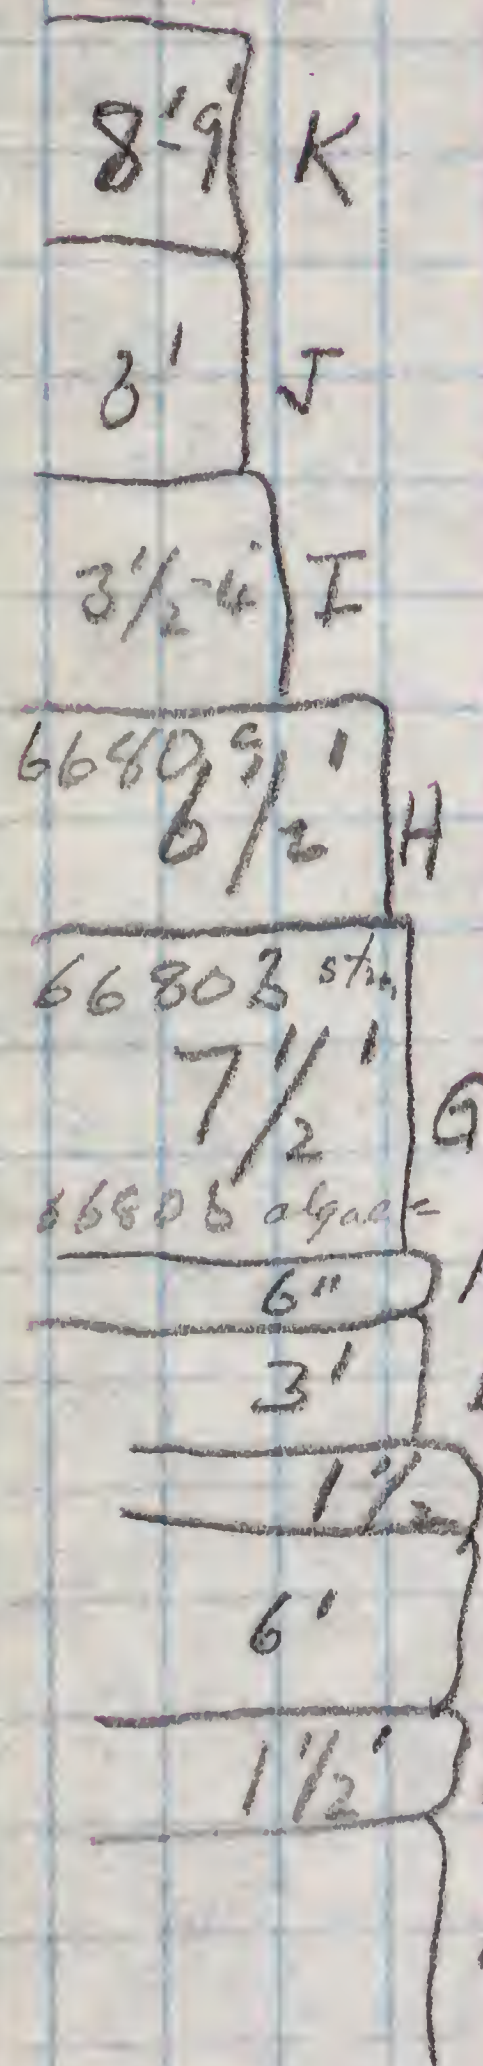 8'-9' K
J
3 1/2-4' I
66809
6 1/2' H
66803
7 1/2' G
algae
6"
3'
1 1/2
6'
1 1/2'